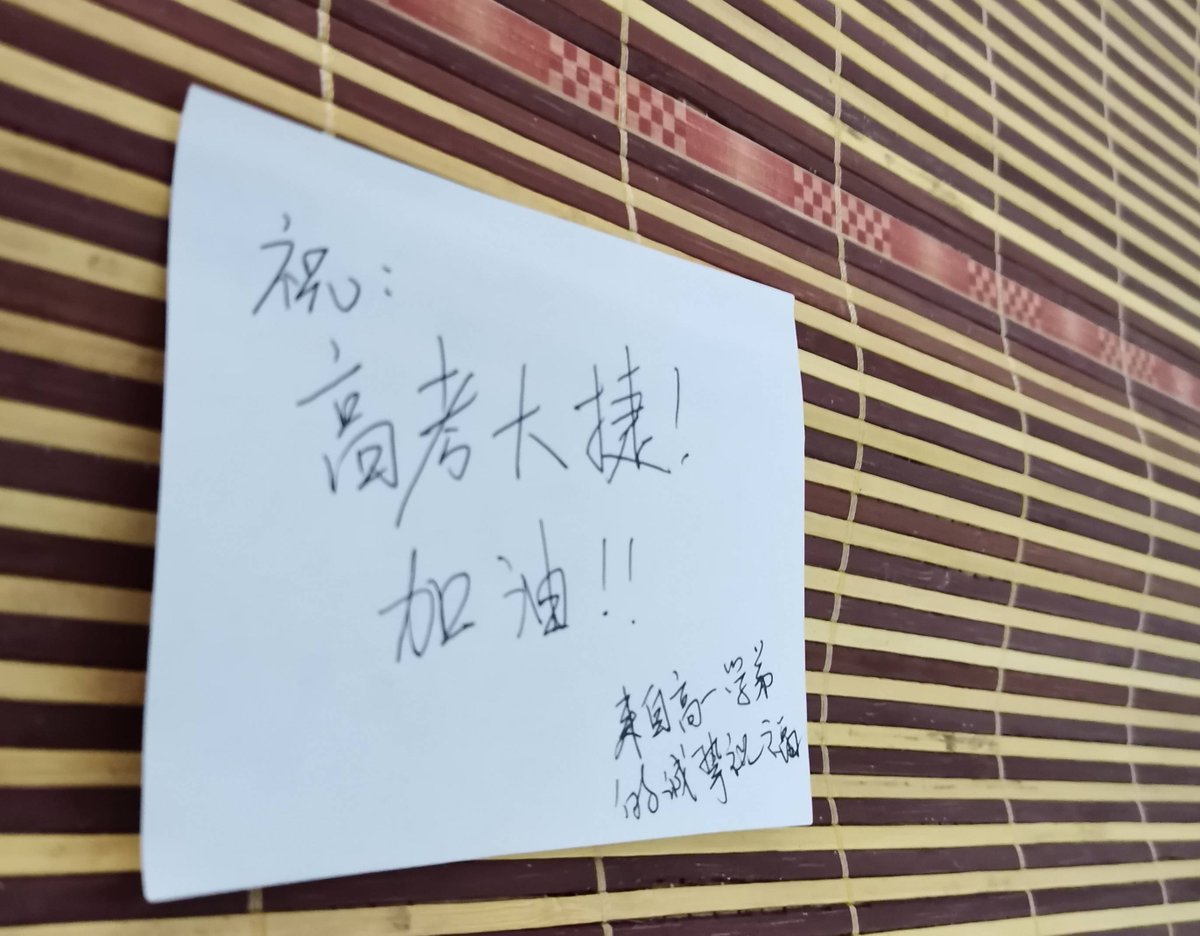 祝：
高考大捷！
加油！！
来自高一学弟
的诚挚祝福